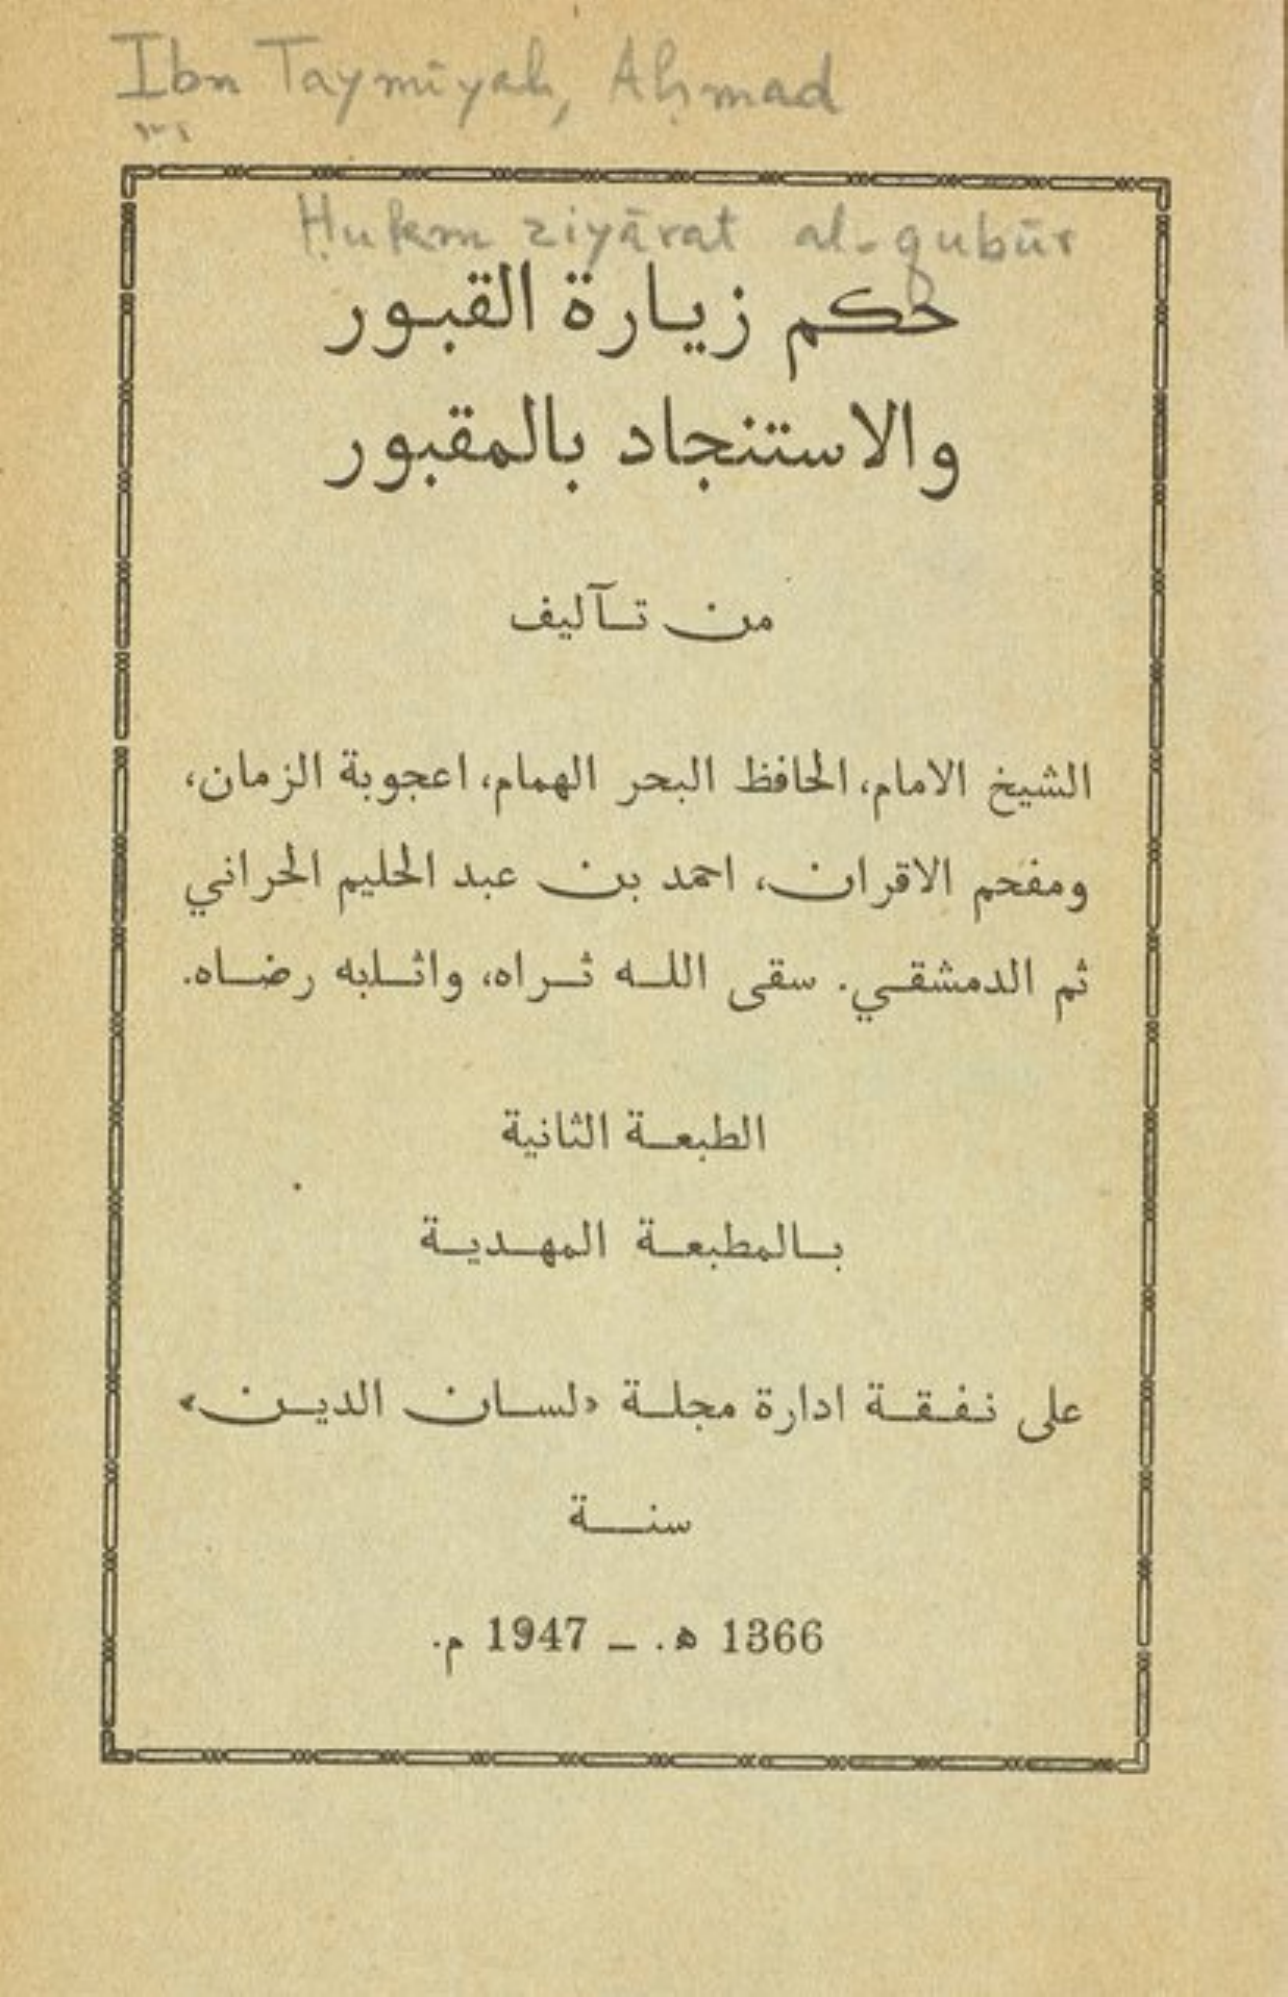 Ibn Taymīyah, Aḥmad
Ḥukm ziyārat al-qubūr
حكم زيارة القبور
والاستنجاد بالمقبور
من تآليف
الشيخ الامام، الحافظ البحر الهمام، اعجوبة الزمان،
ومفحم الاقران، احمد بن عبد الحليم الحراني
ثم الدمشقي. سقى الله ثراه، واثابه رضاه.
الطبعة الثانية
بالمطبعة المهدية
على نفقة ادارة مجلة «لسان الدين»
سنة
1366 ه. — 1947 م.